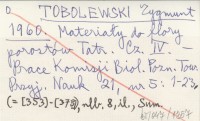 TOBOLEWSKI Zygmunt
1960. Materiały do flory
porostów Tatr. Cz. IV. –
Prace Komisji Biol. Pozn. Tow.
Przyj. Nauk 21, nr 5: 1-23,
(= [353]-[375]), nlb. 8, il., Sum.